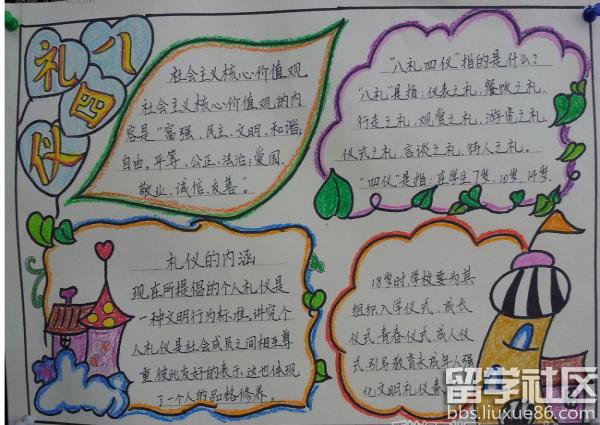 八礼四仪
社会主义核心价值观
社会主义核心价值观的内
容是"富强、民主、文明、和谐,
自由、平等、公正、法治、爱国、
敬业、诚信、友善"。
"八礼四仪"指的是什么?
"八礼"是指:仪表之礼、餐饮之礼、
行走之礼、观赏之礼、游览之礼、
仪式之礼、言谈之礼、待人之礼。
"四仪"是指:在学生7岁、10岁、14岁、
礼仪的内涵
现在所提倡的个人礼仪是
一种文明行为标准。讲究个
人礼仪是社会成员之间相互尊
重、彼此友好的表示,这也体现
了一个人的品格修养。
18岁时,学校要为其
组织入学仪式、成长
仪式、青春仪式、成人仪
式,引导教育未成年人强
化文明礼仪素
留学社区
bbs.liuxue86.com